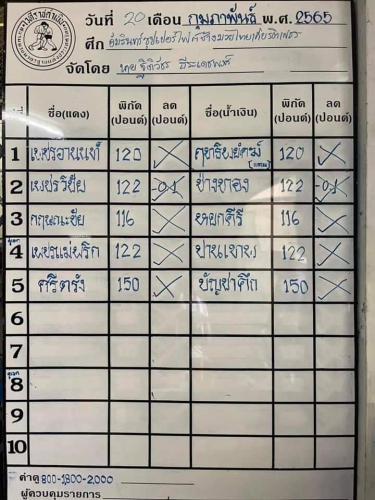 วันที่ 20 เดือน กุมภาพันธ์ พ.ศ. 2565
ศึก
จัดโดย
ที่ ชื่อ(แดง) พิกัด (ปอนด์) ลด (ปอนด์) ชื่อ(น้ำเงิน) พิกัด (ปอนด์) ลด (ปอนด์)
1 เพชรอานนท์ 120 ฤทธิพยัคฆ์ 120
2 เพชรวิชัย 122 -0.1 ช่างทอง 122 -0.1
3 กฤษณะชัย 116 หยกคีรี 116
คู่เอก
4 เพชรแม่พริก 122 122
5 ศรีตรัง 150 บัญชาศึก 150
6
7
คู่เอก
8
9
10
ค่าดู 800-1,800-2,000
ผู้ควบคุมรายการ